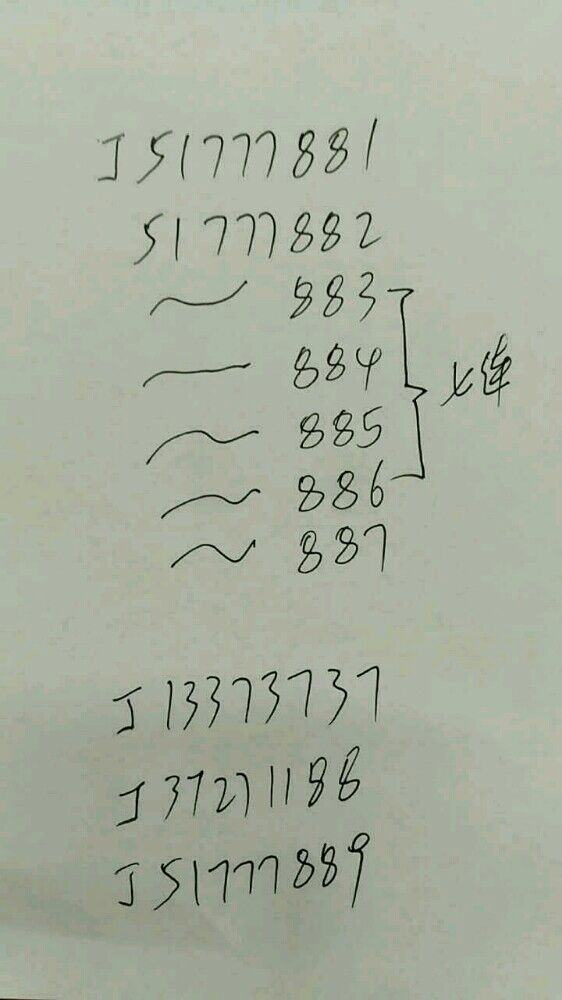 J51777881
51777882
～ 883
— 884
～ 885
～ 886
～ 887
七连
J13373737
J37271188
J51777889